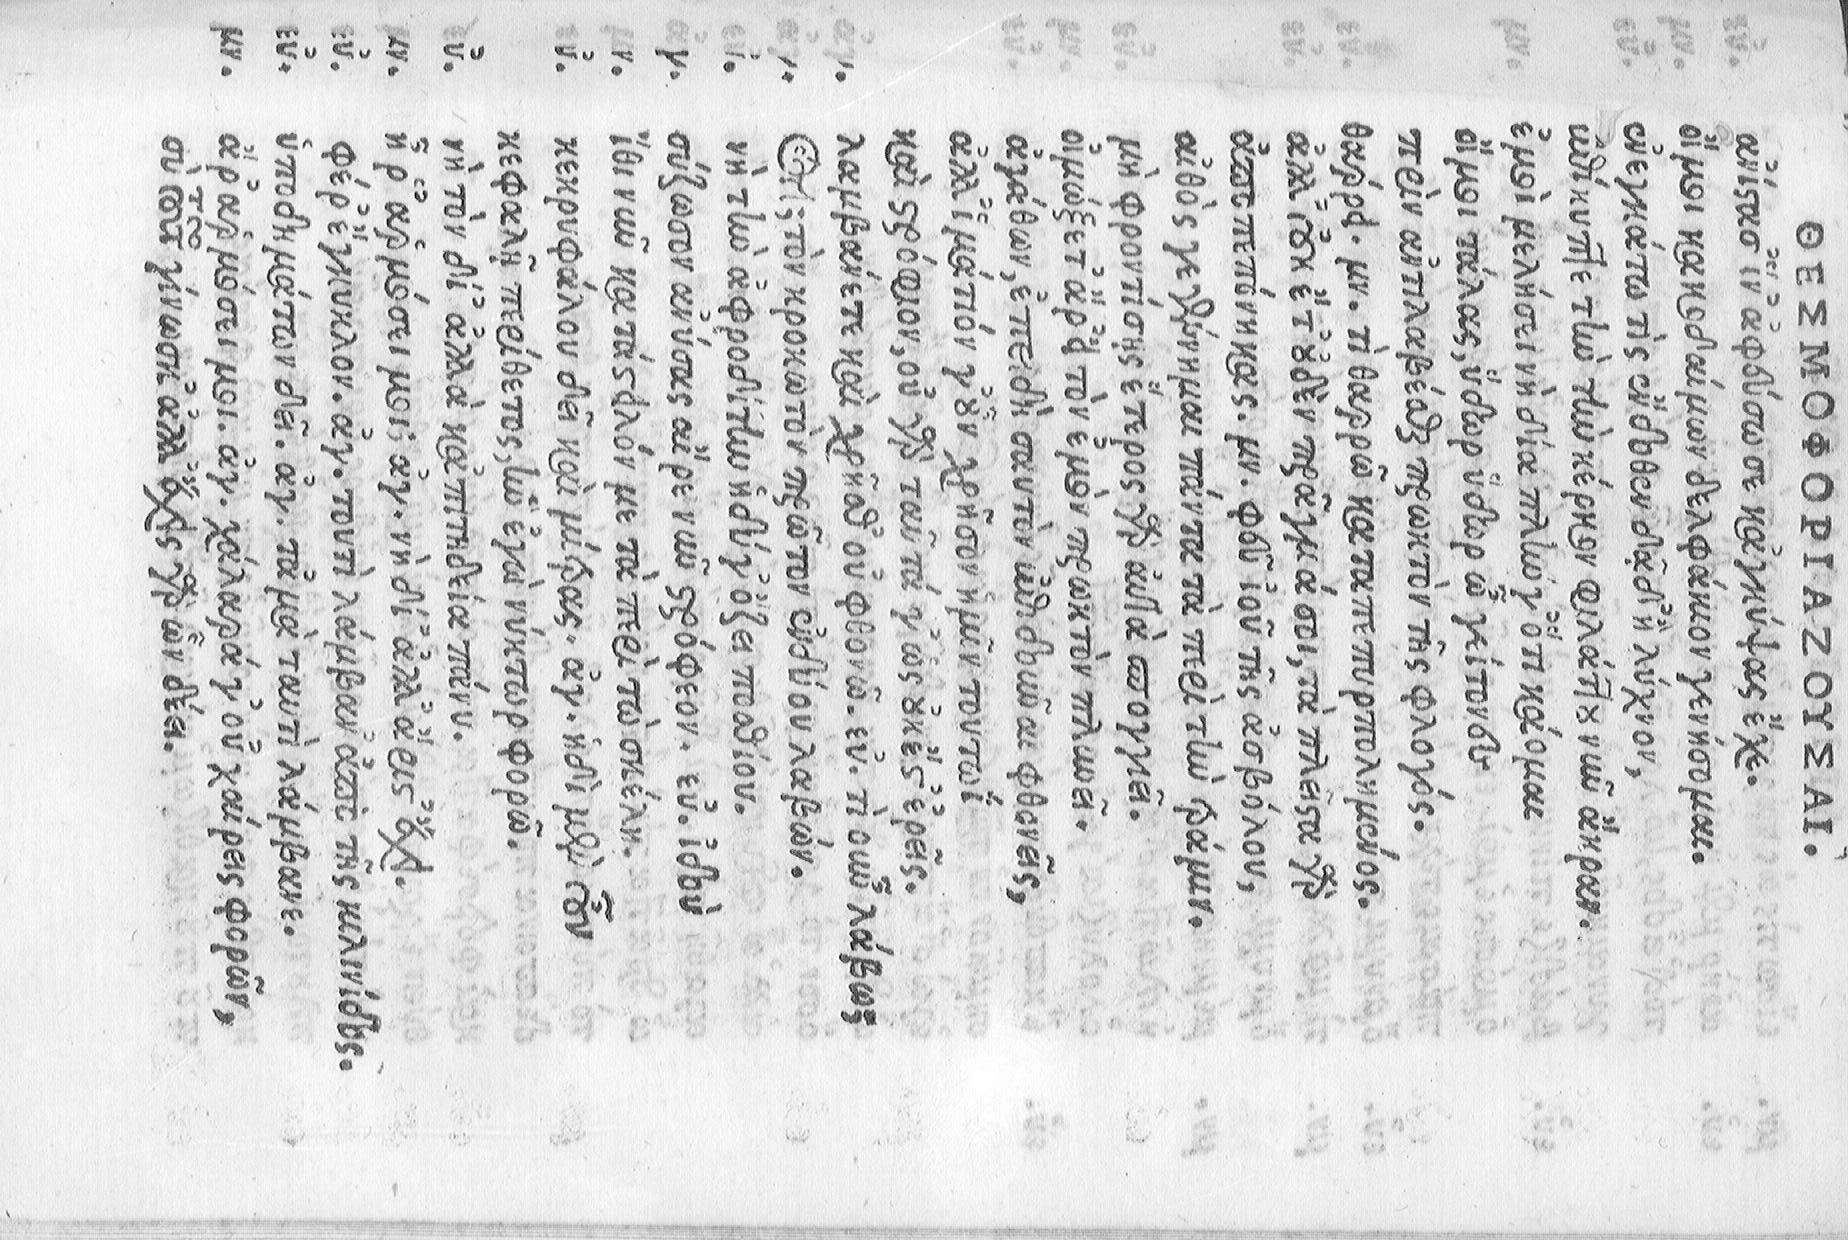 ΘΕΣΜΟΦΟΡΙΑΖΟΥΣΑΙ.
ἀνίστασ' ἵν' ἀφεύσω σε κἀγκύψας ἔχε.
οἴμοι κακοδαίμων δελφάκιον γενήσομαι.
ἐνεγκάτω τὶς ἔνδοθεν δᾷδ' ἢ λύχνον,
ἐπίκυπτε τὴν κέρκον φυλάττου νῦν ἄκραν.
ἐμοὶ μελήσει νὴ δία πλήν γ' ὅτι κάομαι
οἴμοι τάλας, ὕδωρ ὕδωρ ὦ γείτονες
πρὶν ἀντιλαβέσθαι πρωκτὸν τῆς φλογός.
θάρρει. μν. τί θαρρῶ καταπεπυρπολημένος.
ἀλλ' οὐκ ἔτ' οὐδὲν πρᾶγμά σοι, τὰ πλεῖστα γὰρ
ἀποπεπόνηκας. μν. φεῦ ἰοὺ τῆς ἀσβόλου,
αἰθός γεγένημαι πάντα τὰ περὶ τὴν τράμιν.
μὴ φροντίσῃς ἕτερος γὰρ αὐτὰ σπογγιεῖ.
οἰμώξετ' ἄρα τὸν ἐμὸν πρωκτὸν πλυνεῖ.
ἀγάθων, ἐπειδὴ σαυτὸν ἐπιδοῦναι φθονεῖς,
ἀλλ' ἱμάτιόν γ' οὖν χρῆσον ἡμῖν τουτωῒ
καὶ στρόφιον, οὐ γὰρ ταῦτά γ' ὡς οὐκ ἔστ' ἐρεῖς.
αγ. λαμβάνετε καὶ χρῆσθ' οὐ φθονῶ. εὐ. τί οὖν λάβω;
γ. ὅτι; τὸν κροκωτὸν πρῶτον ἐνδύου λαβών.
ὐ. νὴ τὴν ἀφροδίτην ἡδύ γ' ὄζει ποσθίου.
γ. σύζωσον ἀνύσας αἶρε νῦν στρόφιον. εὐ. ἰδοὺ
ν. ἴθι νῦν κατάστειλόν με τὰ περὶ τὼ σκέλη.
ὐ. κεκρυφάλου δεῖ καὶ μίτρας. ἀγ. ἡδὶ μὲν οὖν
κεφαλὴ περίθετος, ἣν ἐγὼ νύκτωρ φορῶ.
ὐ. νὴ τὸν δί' ἀλλὰ κἀπιτηδεία πάνυ.
μν. ἆρ' ἁρμόσει μοι; ἀγ. νὴ δί' ἀλλ' ἄριστ' ἔχει.
εὐ. φέρ' ἔγκυκλον. ἀγ. τουτὶ λάμβαν' ἀπὸ τῆς κλινίδος.
εὐ. ὑποδημάτων δεῖ. ἀγ. τἀμὰ ταυτὶ λάμβανε.
μν. ἆρ' ἁρμόσει μοι. ἀγ. χαλαρά γ' οὖν χαίρεις φορῶν,
σὺ τοῦτο γίνωσκ' ἀλλ' ἔχεις γὰρ ὧν δέει.